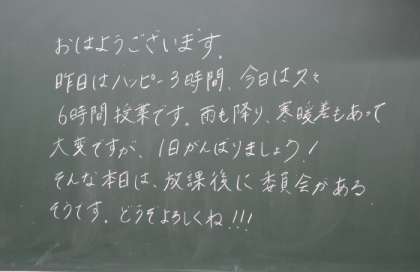 おはようございます。
昨日はハッピー3時間、今日はスペ
6時間授業です。雨も降り、寒暖差もあって
大変ですが、1日がんばりましょう！
そんな本日は、放課後に委員会がある
そうです。どうぞよろしくね!!!